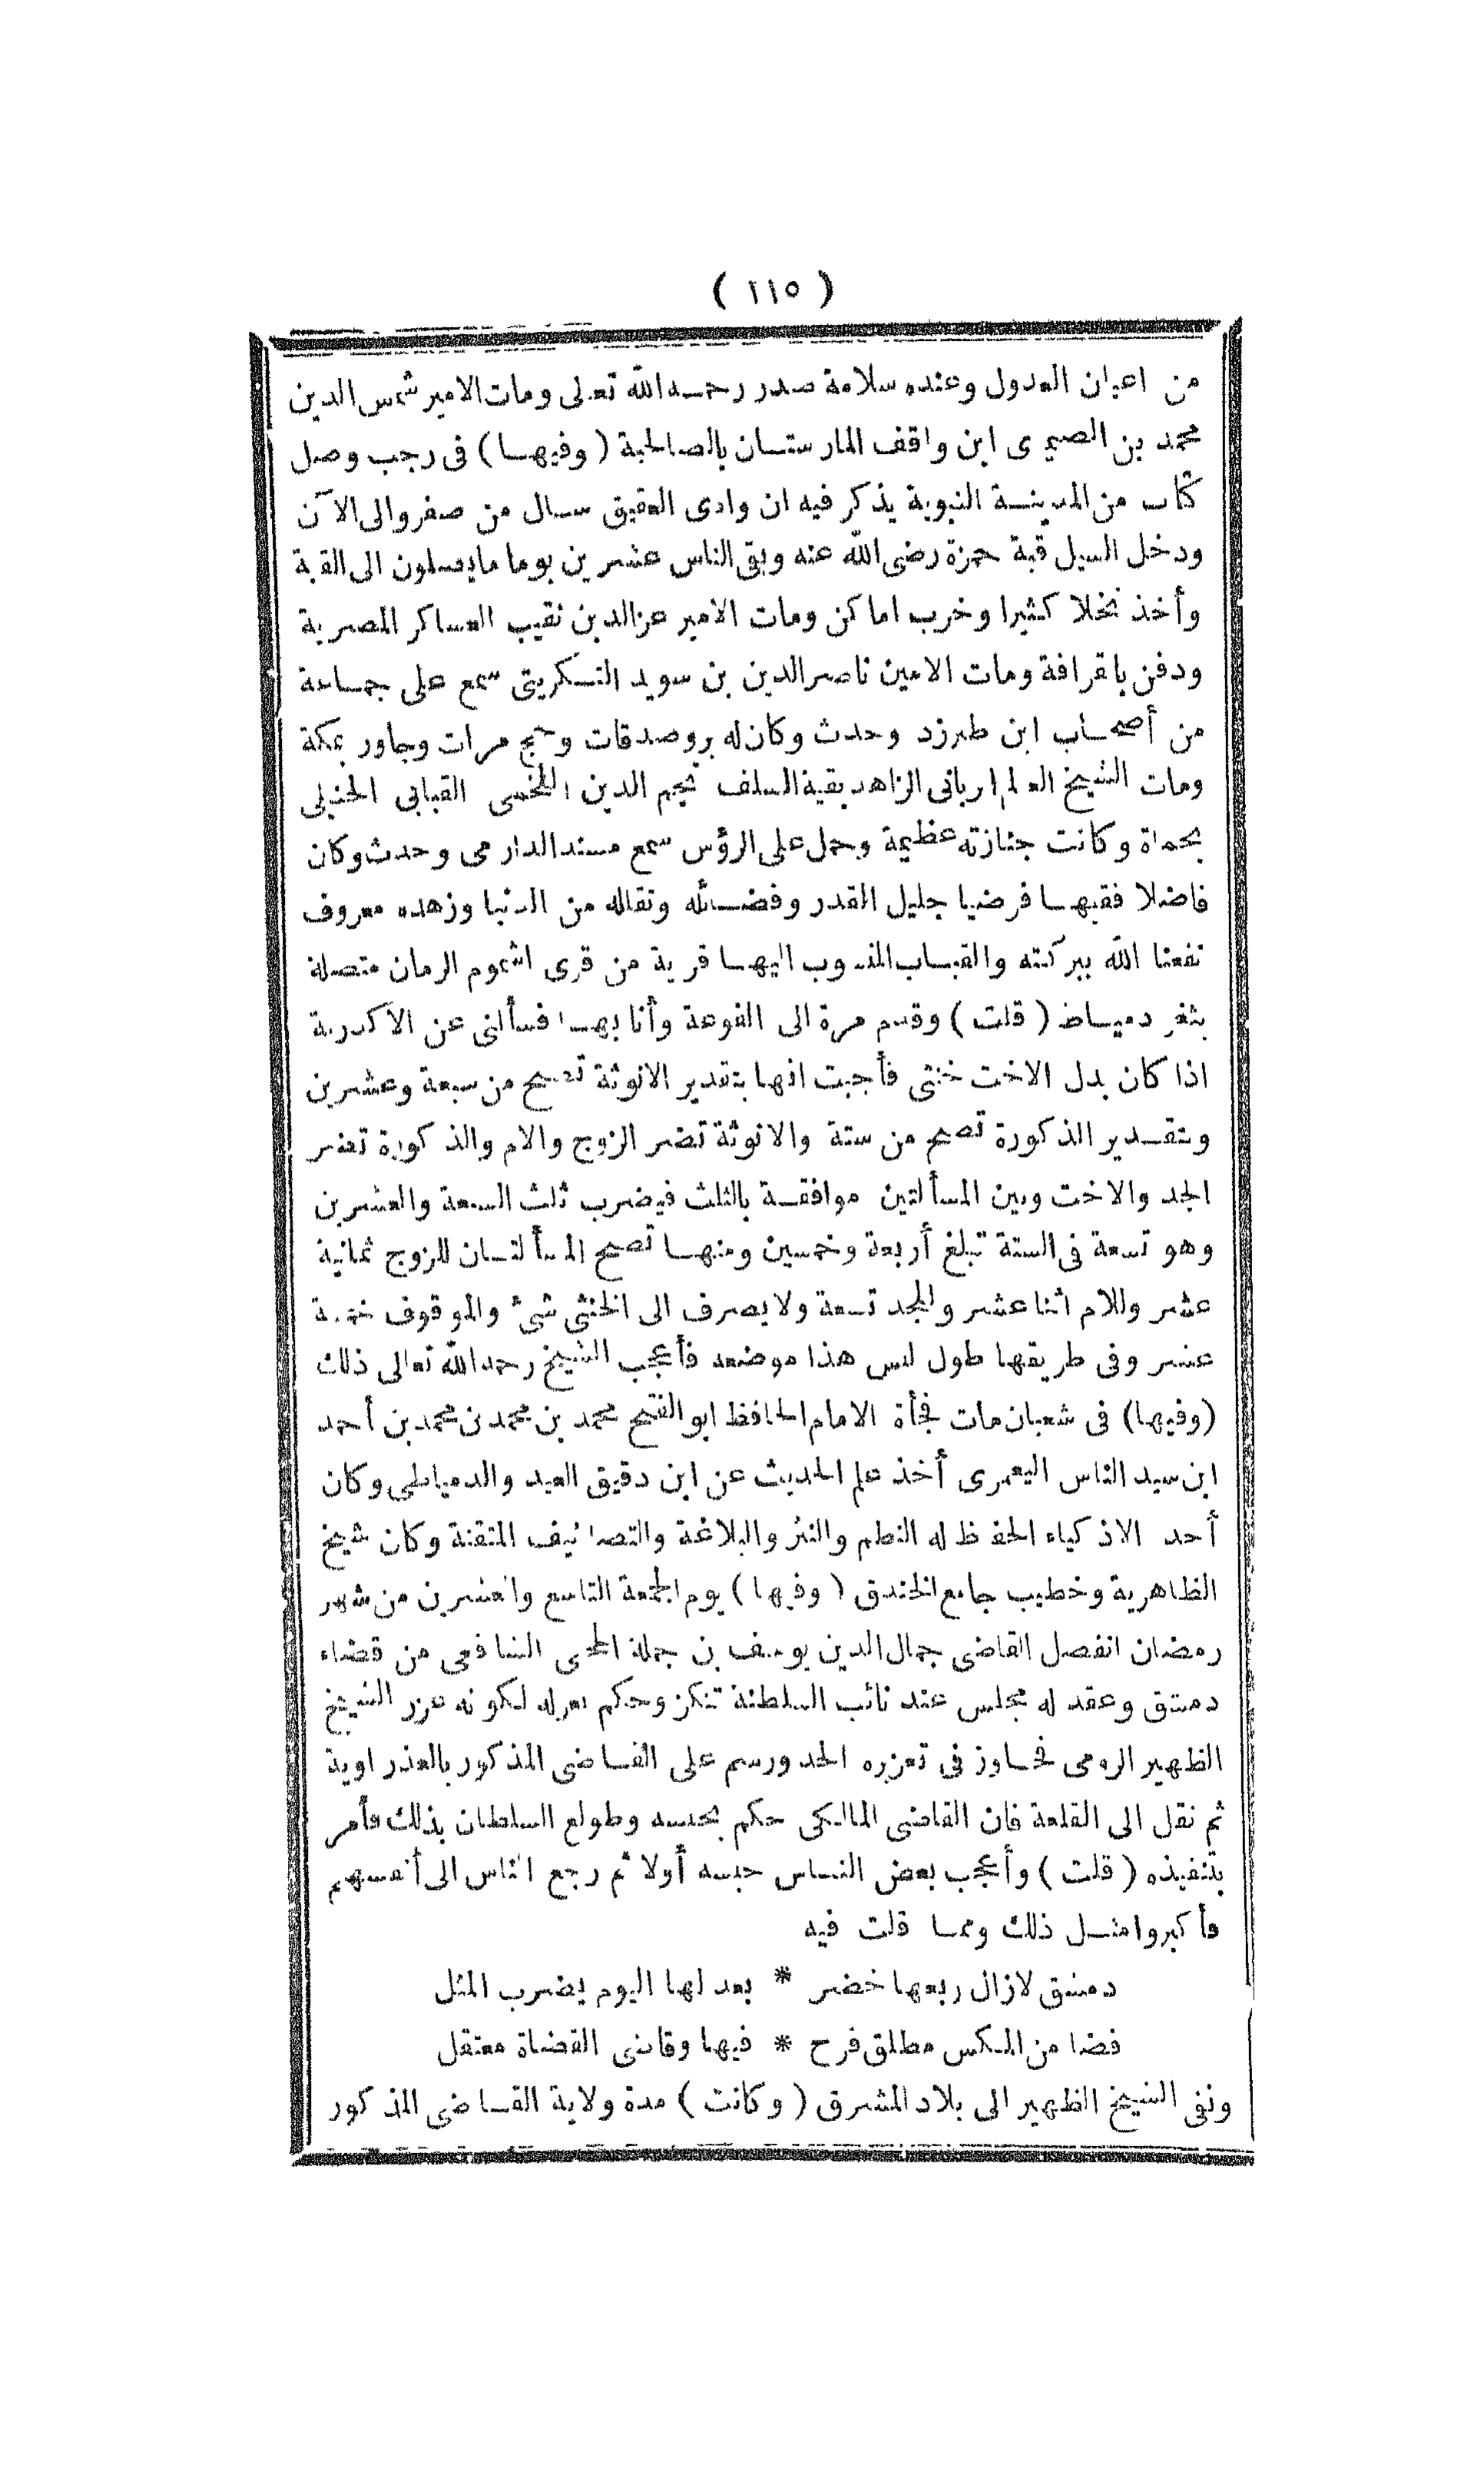 ( ١١٥ )
من اعيان العدول وعنده سلامة صدر رحمه الله تعالى ومات الامير شمس الدين
محمد بن الصيمرى ابن واقف المارستان بالصالحية (وفيها) فى رجب وصل
كتاب من المدينة النبوية يذكر فيه ان وادى العقيق سال من صفر والى الآن
ودخل السيل قبة حمزة رضى الله عنه وبقى الناس عشرين يوما ما يصلون الى القبة
وأخذ نخلا كثيرا وخرب اماكن ومات الامير عزالدين نقيب العساكر المصرية
ودفن بالقرافة ومات الامين ناصرالدين بن سويد التكريتى سمع على جماعة
من أصحاب ابن طبرزد وحدث وكان له بر وصدقات وحج مرات وجاور بمكة
ومات الشيخ العالم الربانى الزاهد بقية السلف نجم الدين اللخمى القبابى الحنبلى
بحماة وكانت جنازته عظيمة وحمل على الرؤس سمع مسند الدارمى وحدث وكان
فاضلا فقيها فرضيا جليل القدر وفضائله وتقلله من الدنيا وزهده معروف
نفعنا الله ببركته والقباب المنسوب اليها قرية من قرى اشموم الرمان متصلة
بثغر دمياط (قلت) وقدم مرة الى الفوعة وأنا بها فسألنى عن الاكدرية
اذا كان بدل الاخت خنثى فأجبت انها بتقدير الانوثة تصح من سبعة وعشرين
وبتقدير الذكورة تصح من ستة والانوثة تضر الزوج والام والذكورة تضر
الجد والاخت وبين المسألتين موافقة بالثلث فيضرب ثلث السبعة والعشرين
وهو تسعة فى الستة تبلغ أربعة وخمسين ومنها تصح المسألتان للزوج ثمانية
عشر وللام اثنا عشر وللجد تسعة ولا يصرف الى الخنثى شئ والموقوف خمسة
عشر وفى طريقها طول ليس هذا موضعه فأعجب الشيخ رحمه الله تعالى ذلك
(وفيها) فى شعبان مات فجأة الامام الحافظ ابو الفتح محمد بن محمد بن محمد بن أحمد
ابن سيد الناس اليعمرى أخذ علم الحديث عن ابن دقيق العيد والدمياطى وكان
أحد الاذكياء الحفاظ له النظم والنثر والبلاغة والتصانيف المتقنة وكان شيخ
الظاهرية وخطيب جامع الخندق (وفيها) يوم الجمعة التاسع والعشرين من شهر
رمضان انفصل القاضى جمال الدين يوسف بن جملة المحجى الشافعى من قضاء
دمشق وعقد له مجلس عند نائب السلطنة تنكز وحكم بعزله لكونه عزر الشيخ
الظهير الرومى فجاوز فى تعزيره الحد ورسم على القاضى المذكور بالعذراوية
ثم نقل الى القلعة فان القاضى المالكى حكم بحبسه وطولع السلطان بذلك فأمر
بتنفيذه (قلت) وأعجب بعض الناس حبسه أولا ثم رجع الناس الى أنفسهم
فأكبروا مثل ذلك ومما قلت فيه
دمشق لازال ربعها خضر * بعدلها اليوم يضرب المثل
فضا من المكس مطلق فرح * فيها وقاضى القضاة معتقل
ونفى الشيخ الظهير الى بلاد المشرق (وكانت) مدة ولاية القاضى المذكور